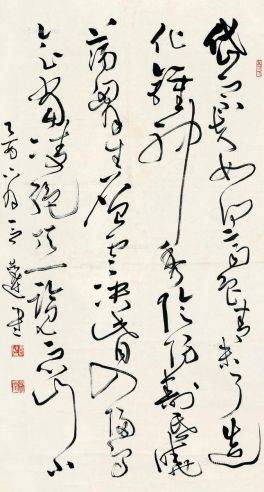 岱宗夫如何齐鲁青未了造
化钟神秀阴阳割昏晓
荡胸生层云决眦入归鸟
会当凌绝顶一览众山小